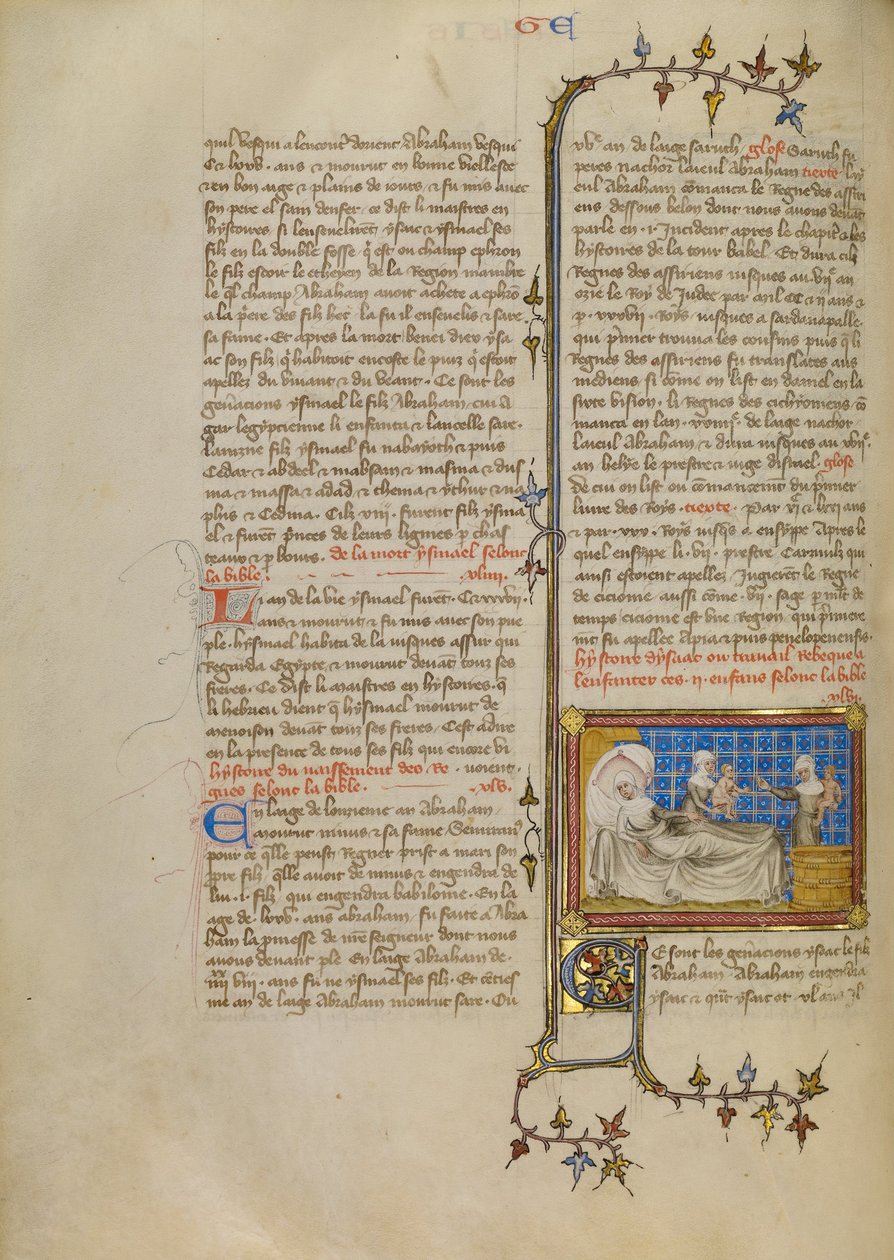 GE
quil vesqui a lencont' dorient Abraham vesqui
C & lxxv · ans & mourut en bonne viellesce
& en bon aage & plains de iours & fu mis avec
son pere el sain denfer · ce dist li maistres en
hystoires si lensevelirent ysaac & ysmael ses
filz en la double fosse · q̄ est ou champ ephron
le filz de la Region mambre
le q̄l champ Abraham avoit achete a ephrō
des filz het · la fu il ensevelis & sare ·
sa fame · Et apres la mort benei diex ysa
ac son filz q̄ habitoit encoste le puiz q̄ estoit
apellez du vivant & du veant · Ce sont les
gen̄acions ysmael le filz Abraham · cui a
gar legypcienne li enfanta & lancelle sare ·
lainzne filz ysmael fu nabayoth & puis
Cedar & abdeel & mabsam & masma & dus
ma & massa & adad & thema & ythur & na
phis & Cedma · Cilz furent filz ysma
el & furēt p̄nces de leurs lignies p̄ chas
teaux & p̄ bours · de la mort ysmael selonc
la bible · xliiii ·
Li an de la vie ysmael furēt · C & xxxvii ·
ans & mourut & fu mis avec son pue
ple · hysmael habita de la iusques assur qui
Regarda Egypte & mourut devāt touz ses
freres · Ce dist li maistres en hystoires · q̄
li hebrieu dient q̄ hysmael mourut de
menoison devāt touz ses freres · Cest adire
en la presence de tous ses filz qui encore vi
hystoire du naissement des Re · voient ·
gnes selonc la bible · xlv ·
En laage de lonzieme an Abraham ·
mourut ninus & sa fame Semiram'
pour ce q̄lle peust Regner prist a mari son
p̄pre filz · q̄lle avoit de ninus & engendra de
lui · i · filz · qui engendra babiloine · En la
age de · lxxv · ans abraham · fu faite a Abra
ham la pmesse de nr̄e seigneur dont nous
avons devant ple En laage Abraham de ·
iiii ans fu ne ysmael ses filz · Et
me an de laage Abraham mourut sare · Ou
an de laage saruth / glose Saruth fu
peres nachor laieul Abraham · tiexte · lay
eul Abraham cōmanca le Regne des assiri
ens dessous belon dont nous avons devāt
parle en · i · Incident apres le chapit' des
hystoires de la tour babel · Et dura cilz
Regnes des assiriens iusques au vii^e an
ozie le Roy de Judee par mil CC & ii ans &
p̄ · xxxvii · Roys · iusques a sardanapalle ·
qui p̄mier trouva les coussins puis q̄ li
Regnes des assiriens fu translates aus
mediens · si cōme on list en daniel en la
sixte vision · li Regnes des cichyoniens · cō
manca en lan · de laage nachor ·
laieul Abraham · & dura iusques au
an helye le prestre & iuge disrael · glose
de cui on list ou cōmancemēt du p̄mier
livre des Roys · tiexte · Par & ans
& par · xxx · Roys iusq̄s a ensyppe Apres le
quel ensyppe li · vii · prestre Carmilz qui
ainsi estoient apellez Jugierēt le Regne
de ciciome aussi cōme · vii · sage
temps ciciome est une Region · qui p̄miere
mēt fu apellee Apia & puis penelopenensis ·
hystoire dysaac ou travail Rebeque a
lenfanter ces · ii · enfans selonc la bible
xlvi ·
Ce sont les gen̄acions ysaac le filz
Abraham · Abraham engendra
ysaac & q̄nt ysaac ot · xl ans Il